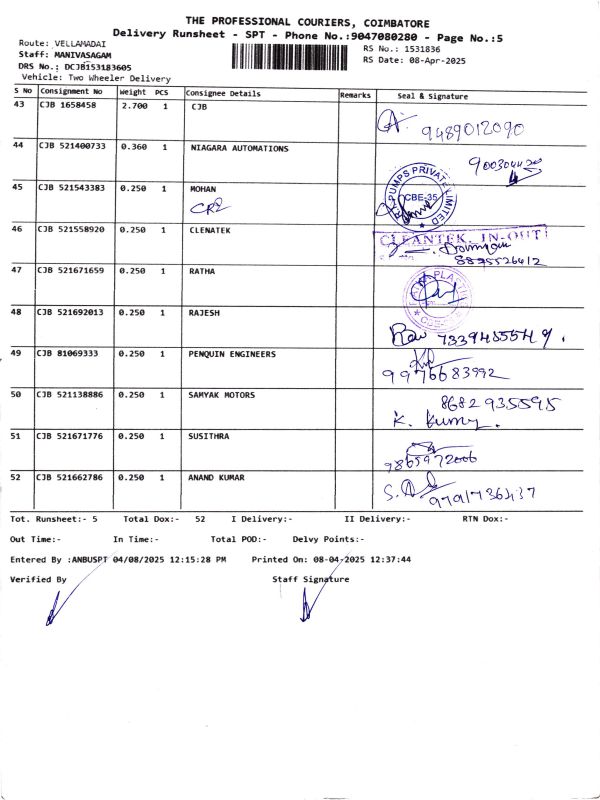 THE PROFESSIONAL COURIERS, COIMBATORE
Delivery Runsheet - SPT - Phone No.:9047080280 - Page No.:5
Route: VELLAMADAI
RS No.: 1531836
Staff: MANIVASAGAM
RS Date: 08-Apr-2025
DRS No.: DCJB153183605
Vehicle: Two Wheeler Delivery
S No Consignment No Weight PCS Consignee Details Remarks Seal & Signature
43 CJB 1658458 2.700 1 CJB
9489012090
44 CJB 521400733 0.360 1 NIAGARA AUTOMATIONS
45 CJB 521543383 0.250 1 MOHAN
PUMPS PRIVATE LIMITED
CBE-35
46 CJB 521558920 0.250 1 CLENATEK
CLEANTEK, IN-OUT
8875526412
47 CJB 521671659 0.250 1 RATHA
48 CJB 521692013 0.250 1 RAJESH
49 CJB 81069333 0.250 1 PENQUIN ENGINEERS
9976683992
50 CJB 521138886 0.250 1 SAMYAK MOTORS
8682935595
K. Kumar.
51 CJB 521671776 0.250 1 SUSITHRA
9865972006
52 CJB 521662786 0.250 1 ANAND KUMAR
9791736437
Tot. Runsheet:- 5 Total Dox:- 52 I Delivery:- II Delivery:- RTN Dox:-
Out Time:- In Time:- Total POD:- Delvy Points:-
Entered By :ANBUSPT 04/08/2025 12:15:28 PM Printed On: 08-04-2025 12:37:44
Verified By Staff Signature